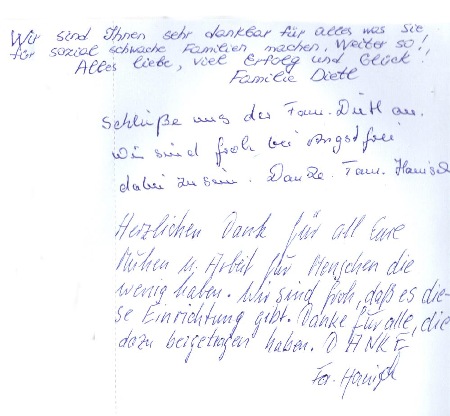 Wir sind Ihnen sehr dankbar für alles was Sie
für sozial schwache Familien machen. Weiter so!!
Alles liebe, viel Erfolg und Glück!
Familie Dietl
Schließe uns der Fam. Dietl an.
Wir sind froh bei Angstfrei
dabei zu sein. Danke. Fam. Hanisch
Herzlichen Dank für all Eure
Mühen u. Arbeit für Menschen die
wenig haben. Wir sind froh, daß es die-
se Einrichtung gibt. Danke für alle, die
dazu beigetragen haben. DANKE
Fam.